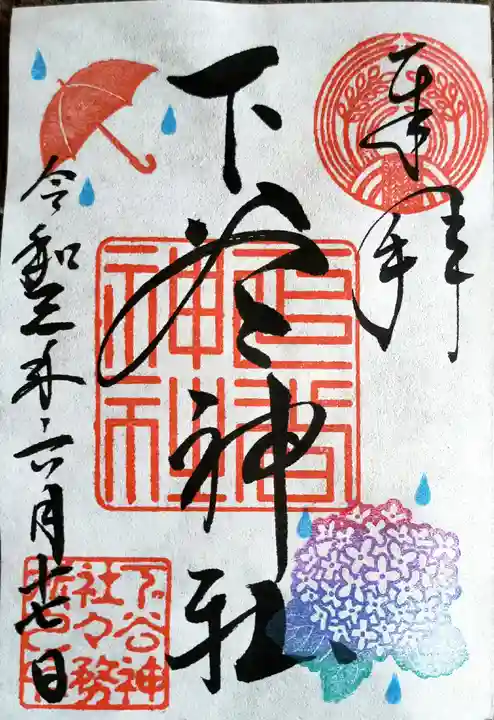 奉拝
下谷神社
下谷神社
令和三年六月十七日
下谷神
社々務